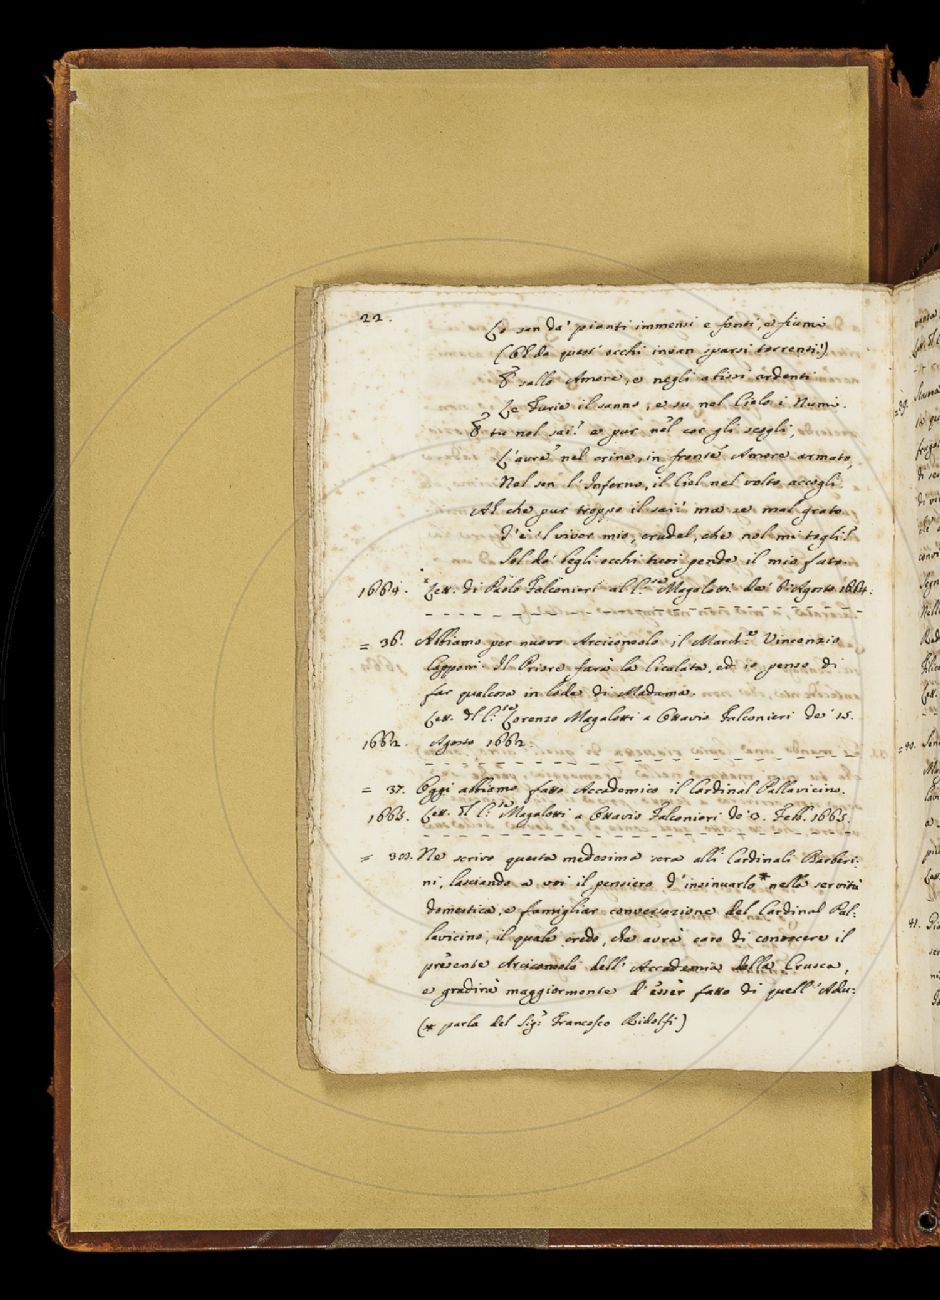 22.
Lo san da' pianti immensi e fonti, e fiumi
(Ch'da quest' occhi invan sparsi torrenti!)
E sallo Amore, e negli abissi ardenti
Le Furie il sanno, e su nel Cielo i Numi.
E tu nol sai! e pur nel cor gli scogli,
L'aure nel crine, in fronte Amore armato,
Nel sen l'Inferno, il Ciel nel volto accogli
Ah che pur troppo il sai! ma se mal grato
T'è 'l viver mio, crudel, che nol mi togli?
Sol da' begli occhi tuoi pende il mio fato.
1664. Lett. di Paolo Falconieri al C.te Magalotti de' 6 Agosto 1664.
= 36. Abbiamo per nuovo Arciconsolo il March.e Vincenzio
Capponi. Il Priore farà la Cicalata, ed io penso di
far qualcosa in lode di Madama.
Lett. del C.te Lorenzo Magalotti a Ottavio Falconieri de' 15.
1662. Agosto 1662.
= 37. Oggi abbiamo fatto Accademico il Cardinal Pallavicino.
1665. Lett. del C.te Magalotti a Ottavio Falconieri de' 3. Febb. 1665.
= 38. Ne scrivo questa medesima sera alli Cardinali Barberi:
ni, lasciando a voi il pensiero d'insinuarlo * nella servitù
domestica, e famigliar conversazione del Cardinal Pal:
lavicino, il quale credo, che avrà caro di conoscere il
presente Arciconsolo dell'Accademia della Crusca,
e gradirà maggiormente d'esser fatto di quell'Adu:
(* parla del Sig.r Francesco Ridolfi)
39.
= 40.
41.